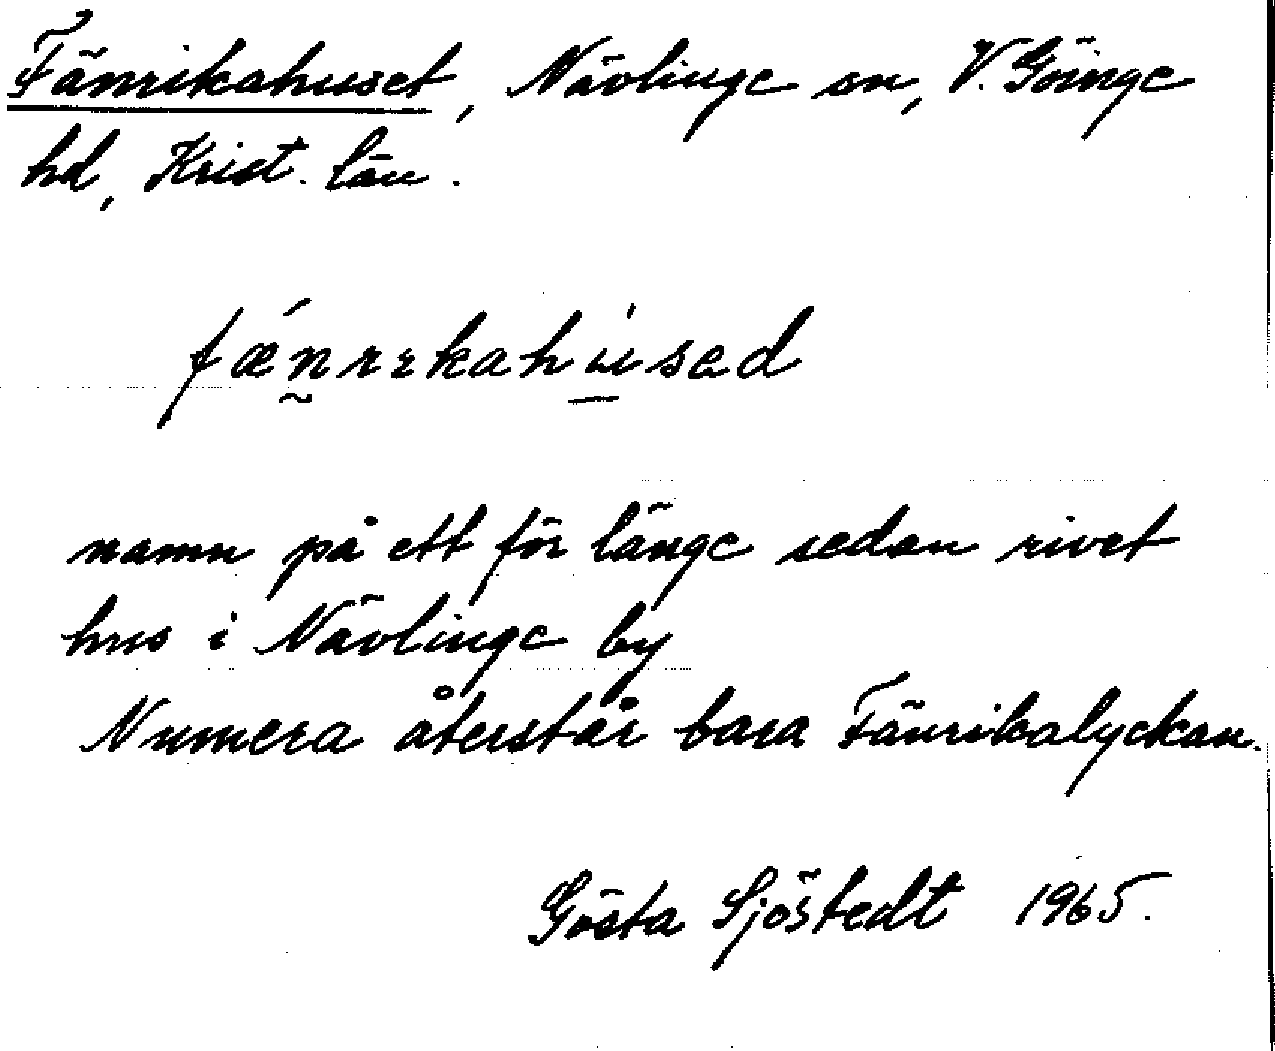 Fänrikahuset, Nävlinge sn, V. Göinge
hd, Krist. län.
fǽn̰rɪkahu̱̍sad
namn på ett för länge sedan rivet
hus i Nävlinge by
Numera återstår bara Fänrikalyckan.
Gösta Sjöstedt 1965.